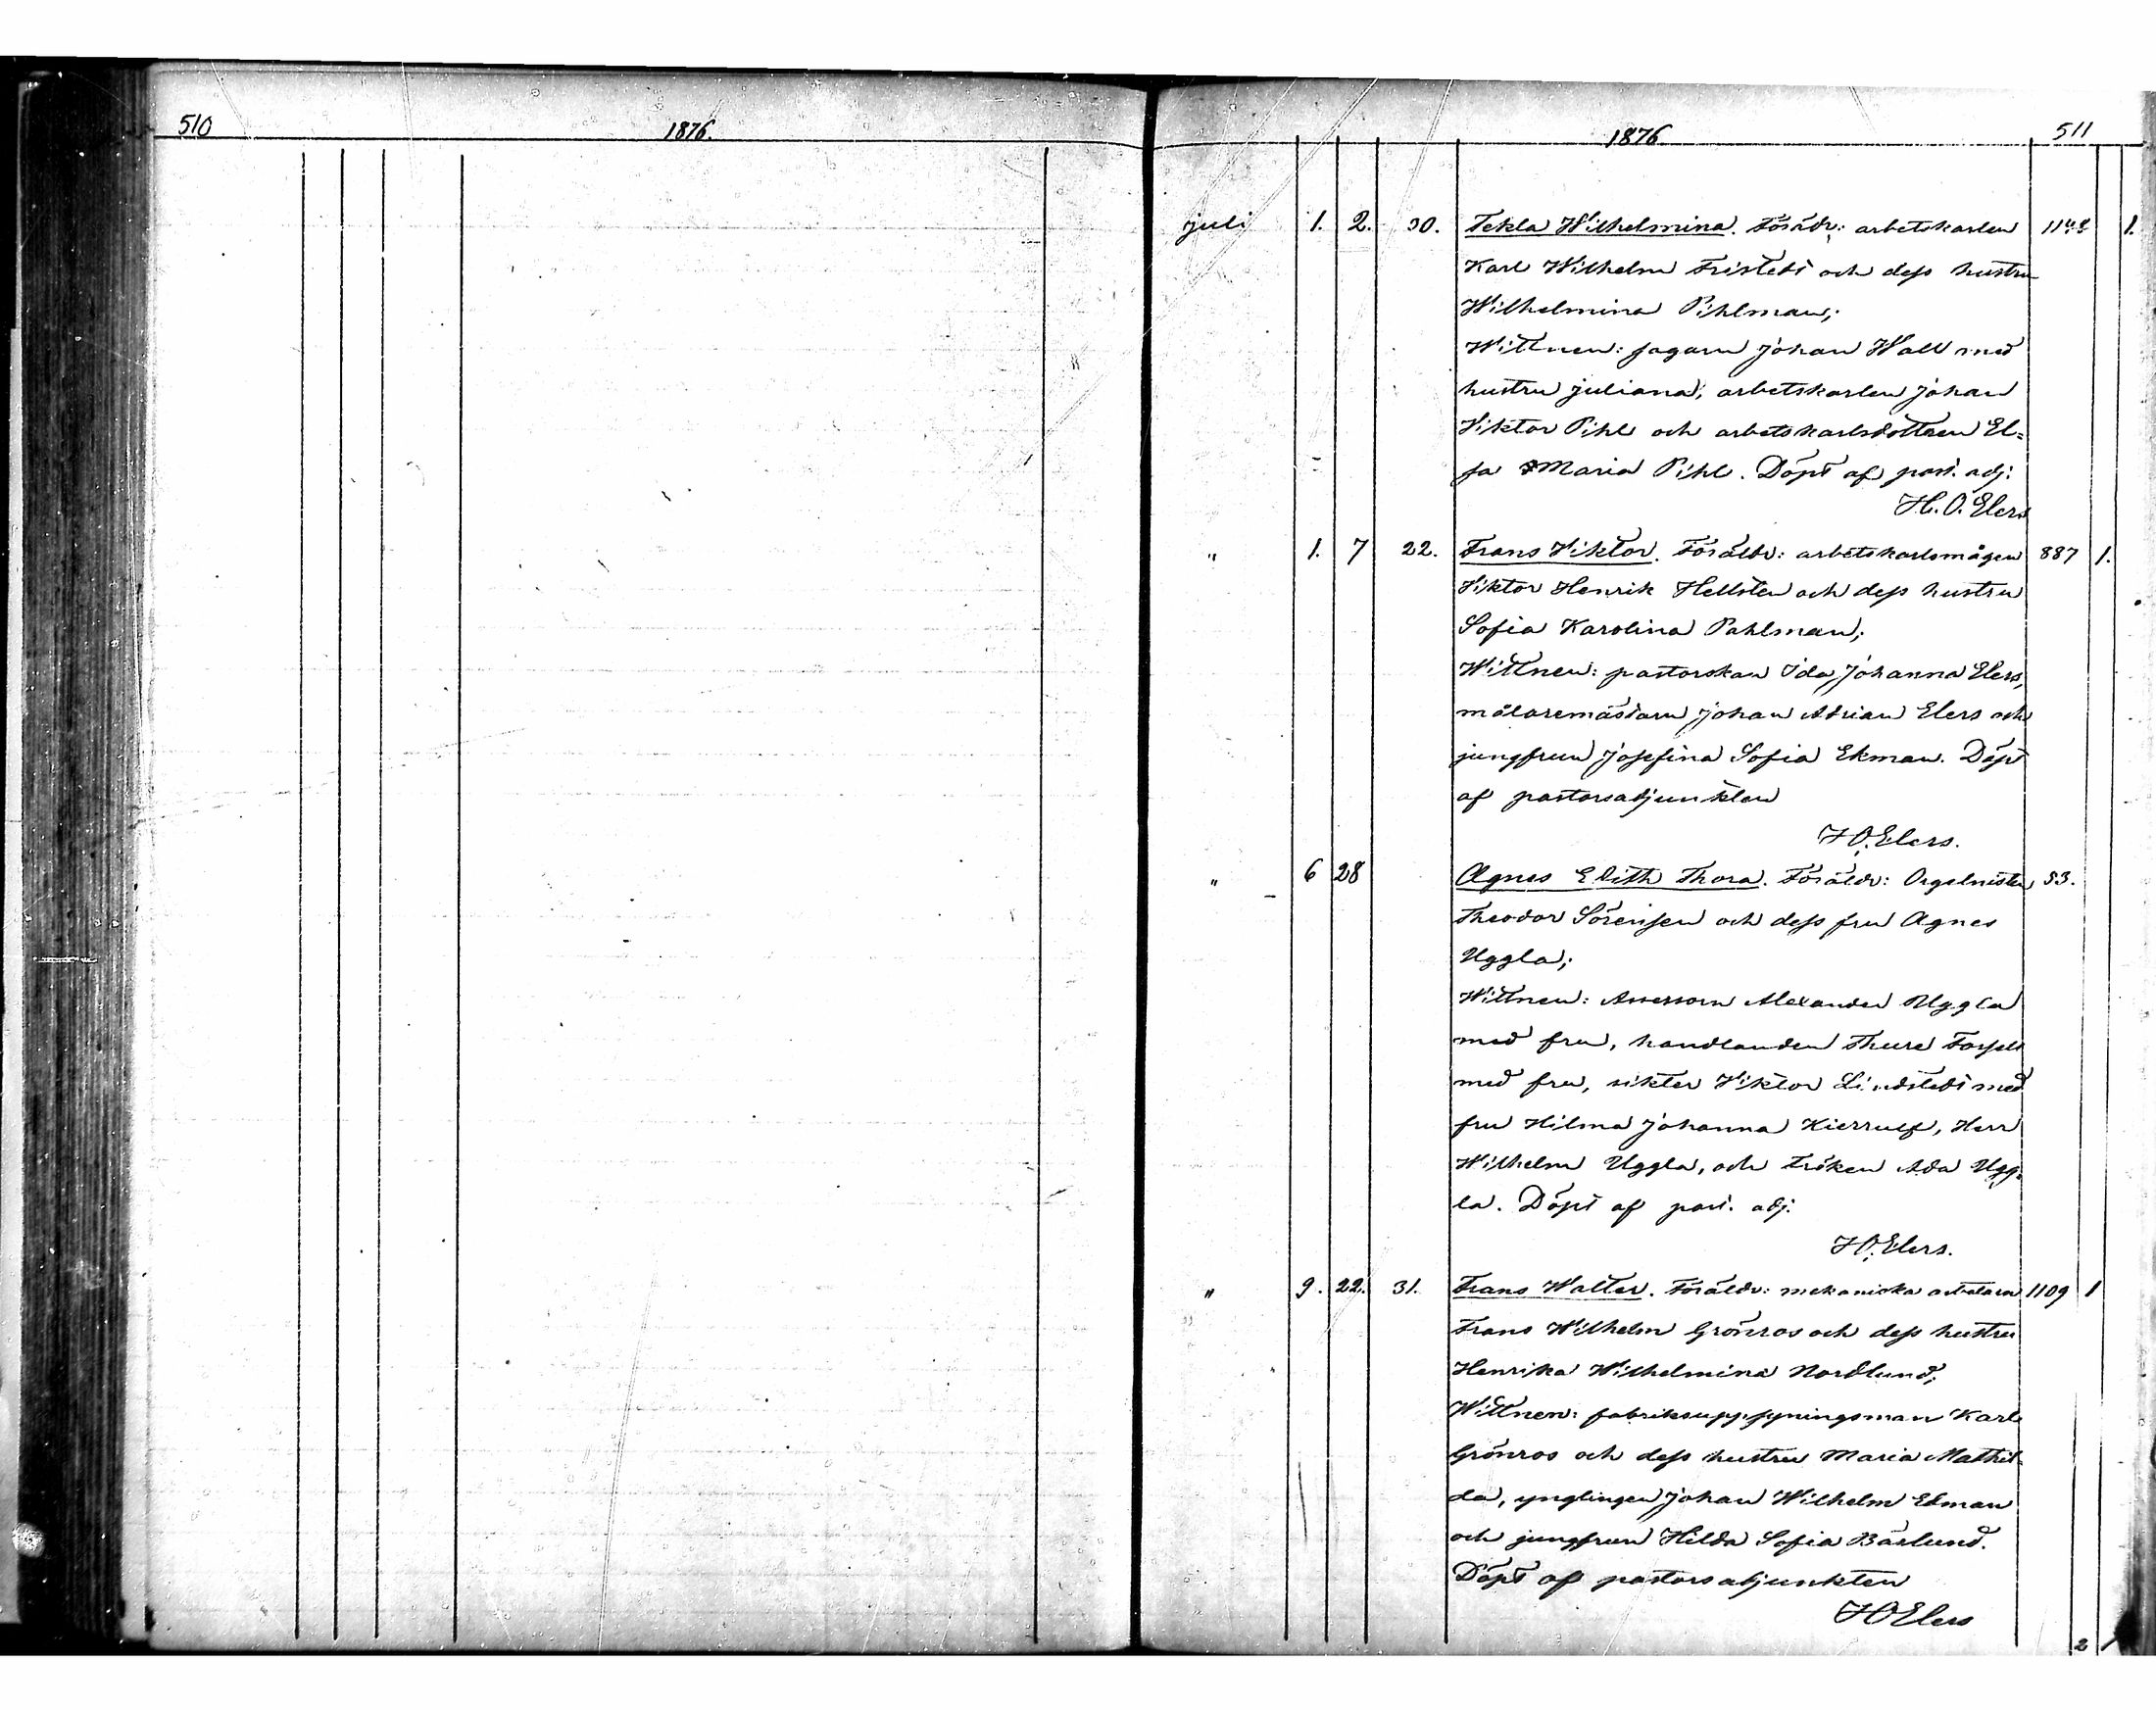 510 1876.
1876 511
juli 1. 2. 30. Tekla Wilhelmina. Föräldr: arbetskarlen 1142 1.
Karl Wilhelm Fristedt och dess hustru
Wilhelmina Pihlman;
Wittnen: Johan Wall med
hustru Juliana, arbetskarlen Johan
Viktor Pihl och arbetskarlsdottren El=
sa Maria Pihl. Döpt af past. adj:
H. O. Elers
" 1. 7 22. Frans Viktor. Föräldr: arbetskarlsmågen 887 1.
Viktor Henrik Hellsten och dess hustru
Sofia Karolina Pahlman;
Wittnen: pastorskan Ida Johanna Elers,
målaremästarn Johan Adrian Elers och
jungfrun Josefina Sofia Ekman. Döpt
af pastorsadjunkten
H O. Elers.
" 6 28 Agnes Edith Thora. Föräldr: Orgelnisten 83.
Theodor Sörensen och dess fru Agnes
Uggla;
Wittnen: Assessorn Alexander Uggla
med fru, handlanden Thure
med fru, Viktor Lindstedt med
fru Hilma Johanna Kierrulf, Herr
Wilhelm Uggla, och fröken Ada Ugg=
la. Döpt af past. adj.
H O. Elers.
" 9. 22. 31. Frans Walter. Föräldr: mekaniska arbetaren 1109 1
Frans Wilhelm Grönros och dess hustru
Henrika Wilhelmina Nordlund;
Wittnen: fabriksuppsyningsman Karl
Grönros och dess hustru Maria Mathil=
da, ynglingen Johan Wilhelm Ekman
och jungfrun Hilda Sofia Bärlund.
Döpt af pastorsadjunkten
H O Elers
2